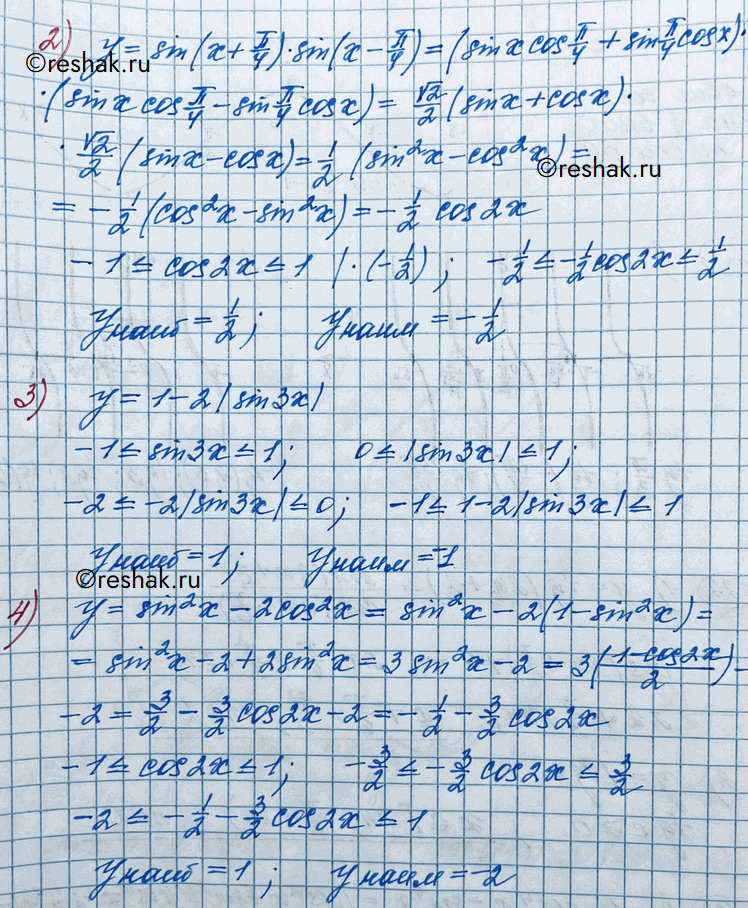 2) y = sin(x + π/4) · sin(x − π/4) = (sin x cos π/4 + sin π/4 cos x) ·
©reshak.ru
· (sin x cos π/4 − sin π/4 cos x) = √2/2 (sin x + cos x) ·
· √2/2 (sin x − cos x) = 1/2 (sin²x − cos²x) =
©reshak.ru
= − 1/2 (cos²x − sin²x) = − 1/2 cos 2x
− 1 ≤ cos 2x ≤ 1 | · (− 1/2) ; − 1/2 ≤ − 1/2 cos 2x ≤ 1/2
yнаиб = 1/2 ; yнаим = − 1/2
3) y = 1 − 2 |sin 3x|
− 1 ≤ sin 3x ≤ 1 ; 0 ≤ |sin 3x| ≤ 1 ;
− 2 ≤ − 2 |sin 3x| ≤ 0 ; − 1 ≤ 1 − 2 |sin 3x| ≤ 1
yнаиб = 1 ; yнаим = −1
©reshak.ru
4) y = sin²x − 2cos²x = sin²x − 2(1 − sin²x) =
= sin²x − 2 + 2 sin²x = 3 sin²x − 2 = 3 ((1 − cos 2x)/2) −
− 2 = 3/2 − 3/2 cos 2x − 2 = − 1/2 − 3/2 cos 2x
− 1 ≤ cos 2x ≤ 1 ; − 3/2 ≤ − 3/2 cos 2x ≤ 3/2
− 2 ≤ − 1/2 − 3/2 cos 2x ≤ 1
yнаиб = 1 ; yнаим = −2